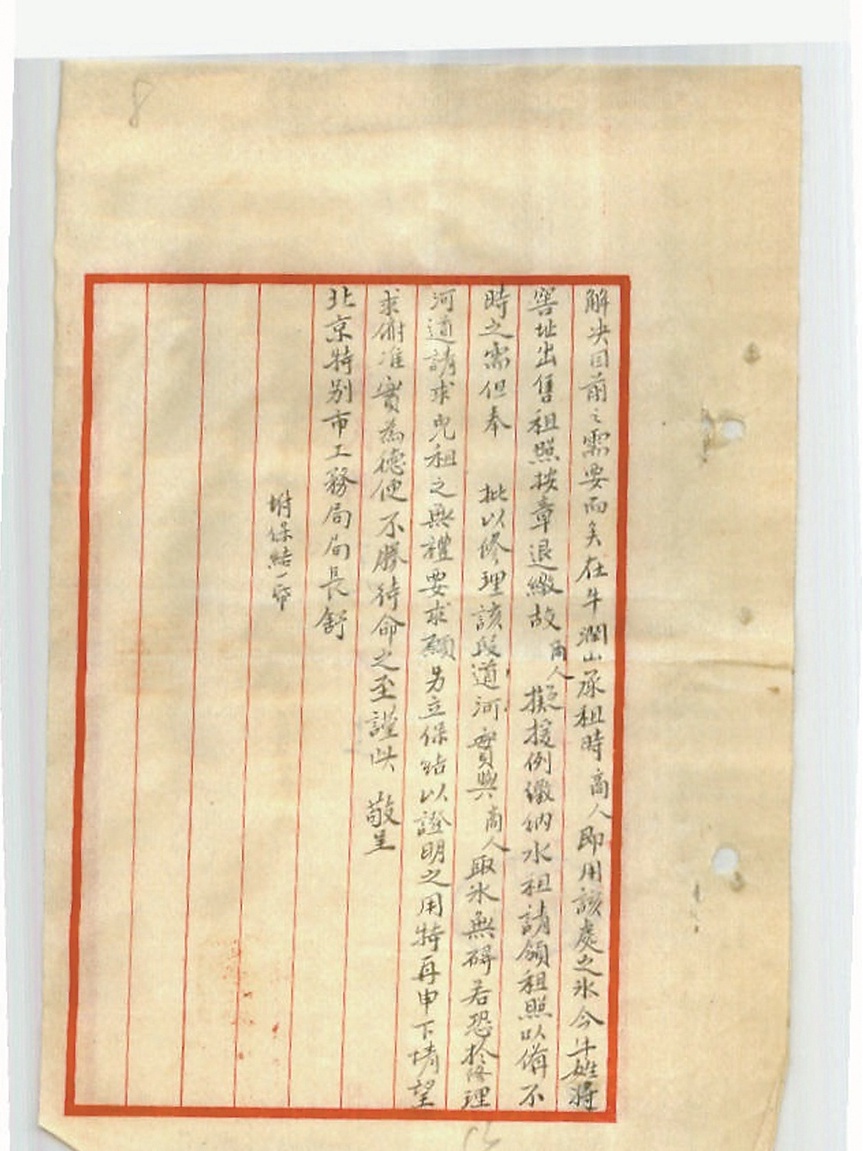 8
解決目前之需要而矣在牛潤山承租時商人即用該處之氷今牛姓將
窖址出售租照按章退繳故商人擬援例繳納水租請領租照以備不
時之需但奉 批以修理該段道河實與商人取氷無碍若恐於修理
河道請求免租之無禮要求願另立保結以證明之用特再申下情望
求俯准實為德便不勝待命之至謹此 敬呈
北京特別市工務局局長舒
坿保結一帋